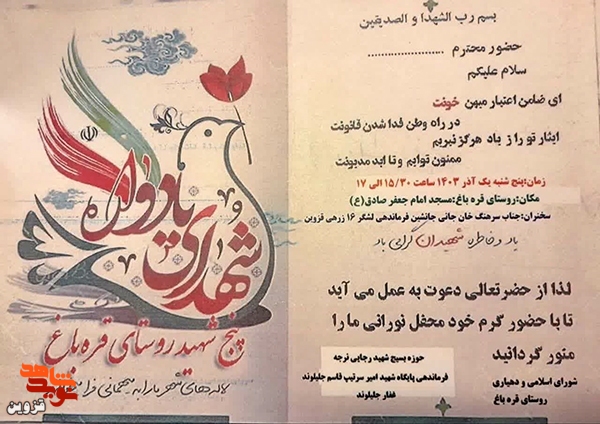 بسم رب الشهدا و الصدیقین
حضور محترم ........................
سلام علیکم
ای ضامن اعتبار میهن خونت
در راه وطن فدا شدن قانونت
ایثار تو را ز یاد هرگز نبریم
ممنون توایم و تا ابد مدیونت
زمان: پنج شنبه یک آذر ۱۴۰۳ ساعت ۱۵/۳۰ الی ۱۷
مکان: روستای قره باغ: مسجد امام جعفر صادق (ع)
سخنران: جناب سرهنگ خان جانی جانشین فرماندهی لشگر ۱۶ زرهی قزوین
یاد و خاطره شهیدان گرامی باد
لذا از حضرتعالی دعوت به عمل می آید
تا با حضور گرم خود محفل نورانی ما را
منور گردانید
حوزه بسیج شهید رجایی نرجه
فرماندهی پایگاه شهید امیر سرتیپ قاسم جلیلوند
غفار جلیلوند
شورای اسلامی و دهیاری
روستای قره باغ
یادواره
شهدای
پنج شهید روستای قره باغ
لاله های شهر ما را به میهمانی
نوید شاهد
قزوین